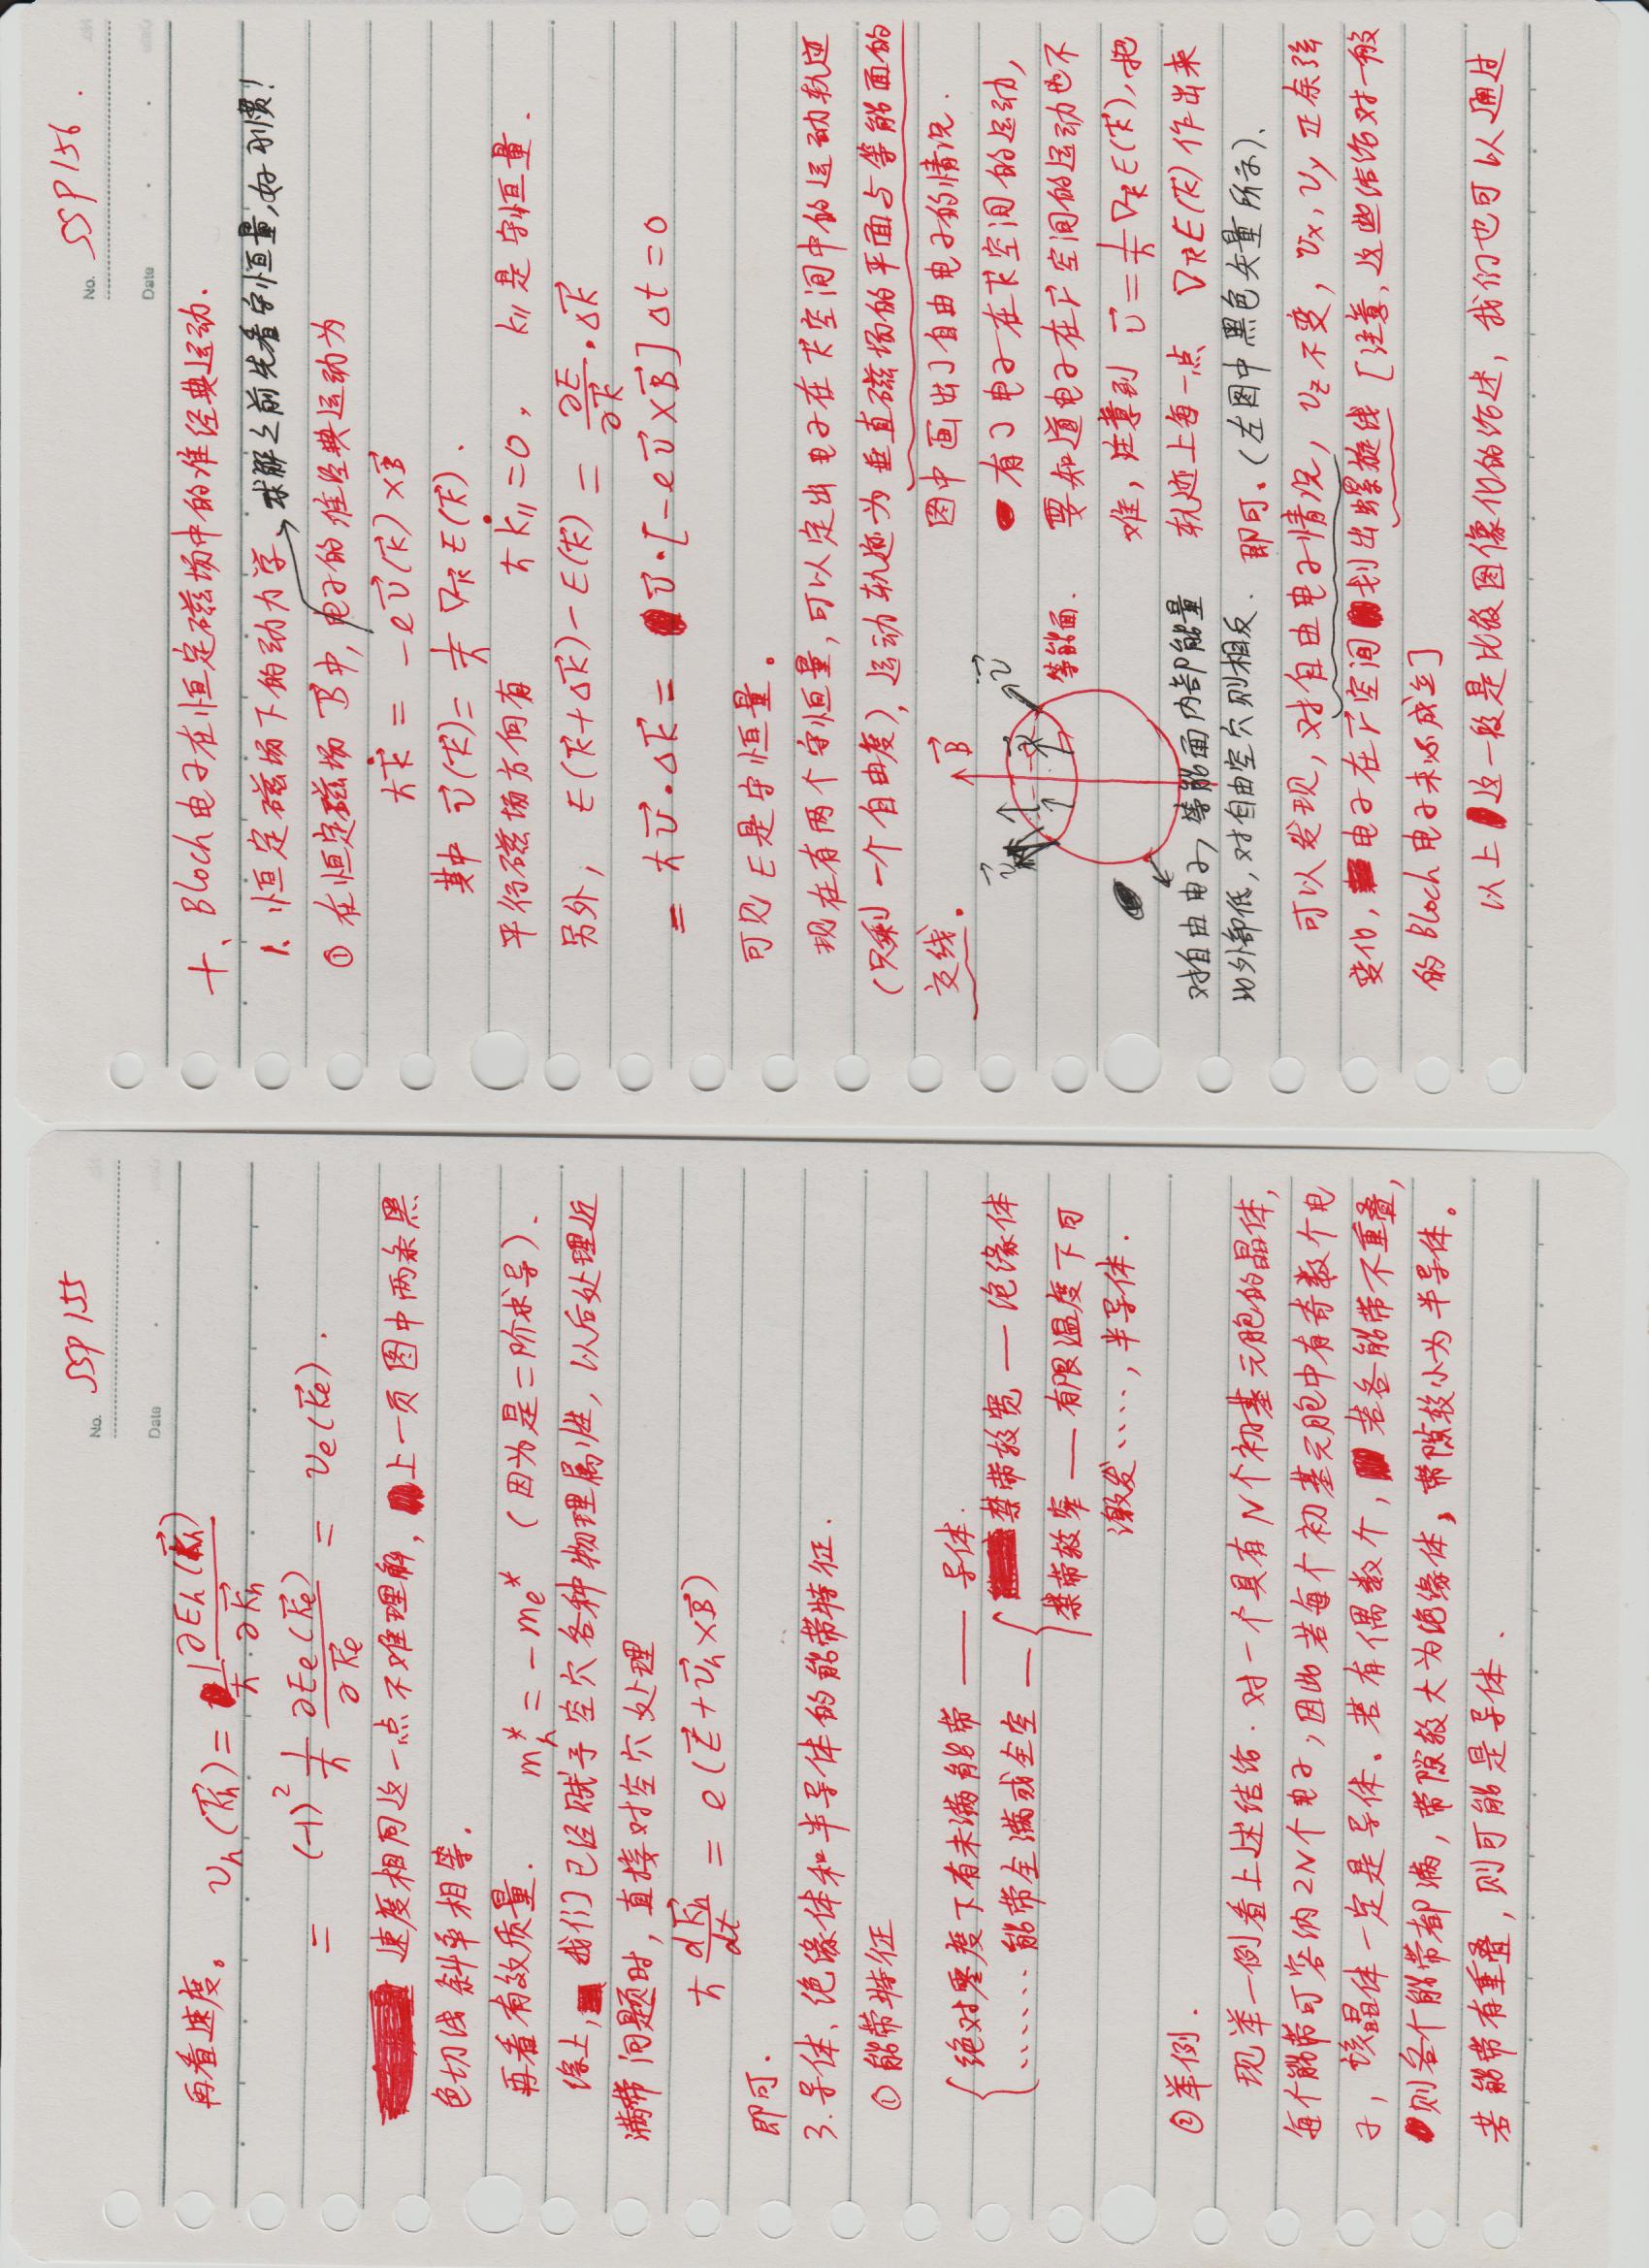 No. SSP 155
Date
再看速度。 v_h(\vec{k}_h) = \frac{1}{\hbar} \frac{∂E_h(\vec{k}_h)}{∂\vec{k}_h}
= (-1)^2 \frac{1}{\hbar} \frac{∂E_e(\vec{k}_e)}{∂\vec{k}_e} = v_e(\vec{k}_e).
速度相同这一点不难理解，上一页图中两条黑
色切线斜率相等.
再看有效质量. m_h^* = -m_e^* (因为是二阶求导).
综上, 我们已经赋予空穴各种物理属性，以后处理近
满带问题时，直接对空穴处理
\hbar \frac{d\vec{k}_h}{dt} = e(\vec{E}+\vec{v}_h×\vec{B})
即可.
3. 导体、绝缘体和半导体的能带特征.
① 能带特征
绝对零度下有未满能带 —— 导体.
…… 能带全满或全空 — 禁带较宽 — 绝缘体
禁带较窄 — 有限温度下可
激发…., 半导体.
② 举例.
现举一例看上述结论. 对一个具有N个初基元胞的晶体,
每个能带可容纳2N个电子，因此若每个初基元胞中有奇数个电
子，该晶体一定是导体。若有偶数个，若各能带不重叠,
则各个能带都满，带隙较大为绝缘体，带隙较小为半导体。
若能带有重叠，则可能是导体.
No. SSP 156.
Date
十、Bloch电子在恒定磁场中的准经典运动.
1. 恒定磁场下的动力学、 求解之前先看守恒量,好习惯!
① 在恒定磁场 \vec{B}中, 电子的准经典运动为
\hbar\dot{\vec{k}} = -e\vec{v}(\vec{k})×\vec{B}
其中 \vec{v}(\vec{k}) = \frac{1}{\hbar} ∇_{\vec{k}} E(\vec{k}).
平行磁场方向有 \hbar\dot{k}_{//}=0, k_{//}是守恒量.
另外, E(\vec{k}+Δ\vec{k})-E(\vec{k}) = \frac{∂E}{∂\vec{k}}·Δ\vec{k}
= \hbar\vec{v}·Δ\vec{k} = \vec{v}·[-e\vec{v}×\vec{B}]Δt=0
可见E是守恒量。
现在有两个守恒量，可以定出电子在\vec{k}空间中的运动轨迹
(只剩一个自由度), 运动轨迹为垂直磁场的平面与等能面的
交线。
\vec{B}
\vec{v}
\vec{v}
等能面.
图中画出了自由电子的情况.
有了电子在\vec{k}空间的运动,
要知道电子在\vec{r}空间的运动也不
难，注意到 \vec{v}=\frac{1}{\hbar}∇_{\vec{k}}E(\vec{k}), 把
轨迹上每一点 ∇_{\vec{k}}E(\vec{k})作出来
即可。(左图中黑色矢量所示).
对自由电子，等能面内部能量
比外部低，对自由空穴则相反.
可以发现，对自由电子情况，v_z不变，v_x, v_y正余弦
变化，电子在\vec{r}空间划出螺旋线 [注意, 这些结论对一般
的Bloch电子未必成立]
以上这一段是比较图像化的论述，我们也可以通过